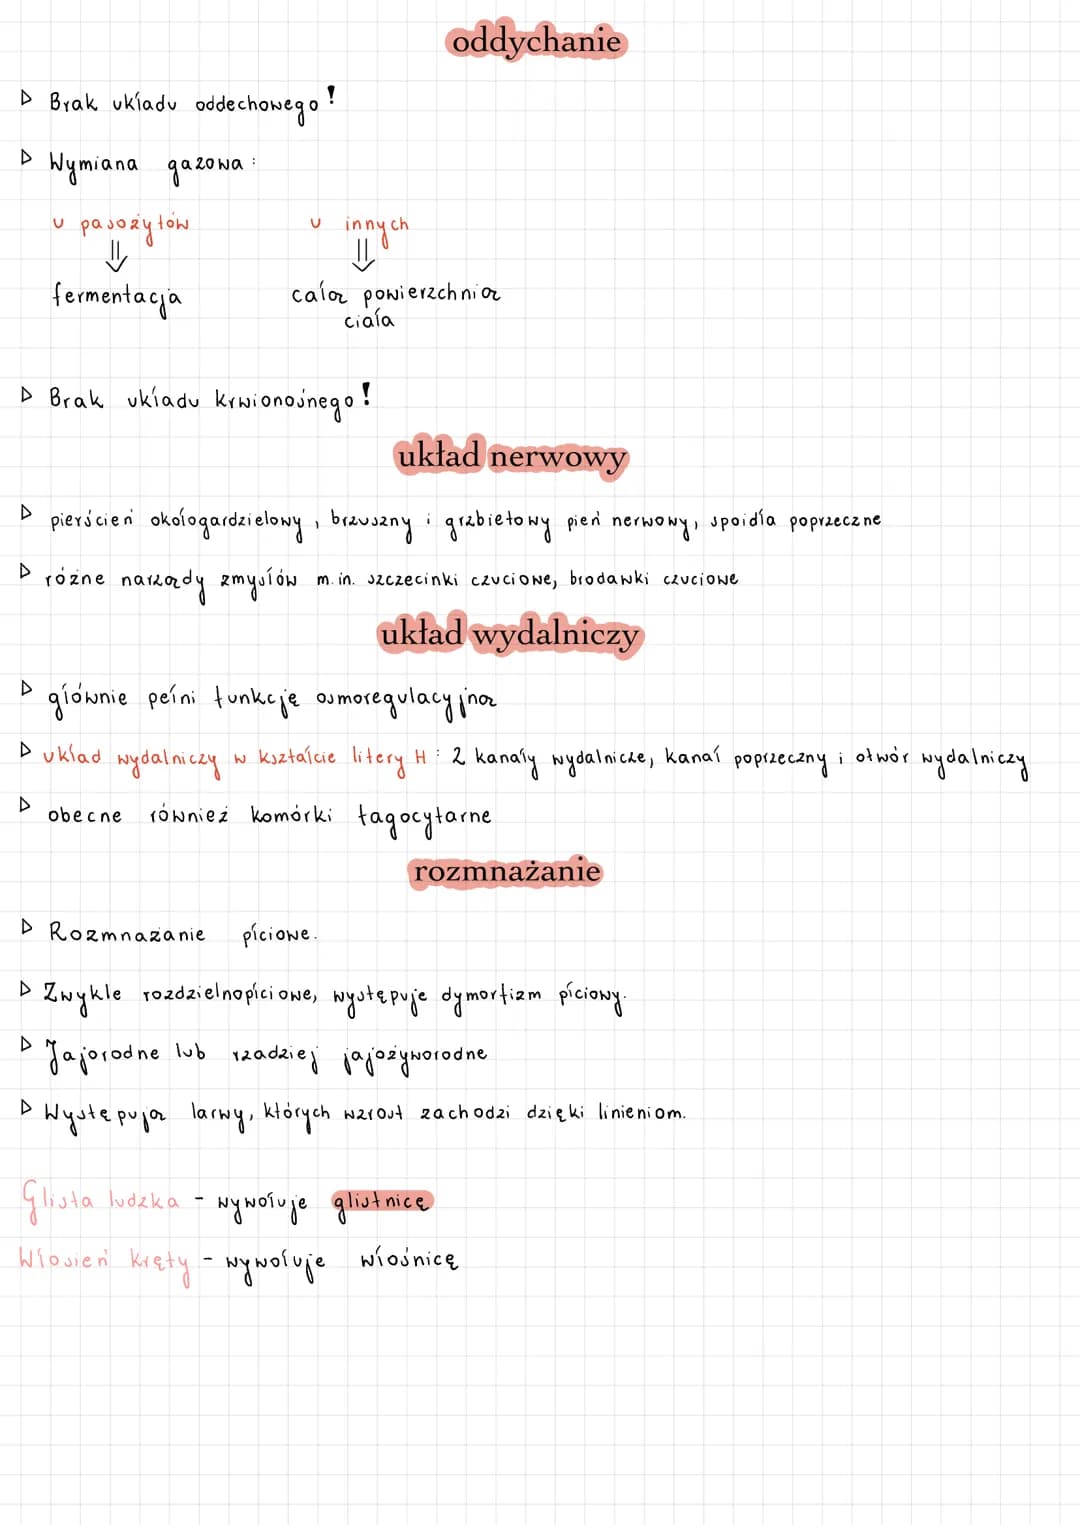 oddychanie
▷ Brak układu oddechowego!
▷ Wymiana gazowa:
u pasożytów u innych
⇓ ⇓
fermentacja całą powierzchnią
ciała
▷ Brak układu krwionośnego!
układ nerwowy
▷ pierścień okołogardzielowy, brzuszny i grzbietowy pień nerwowy, spoidła poprzeczne
▷ różne narządy zmysłów m.in. szczecinki czuciowe, brodawki czuciowe
układ wydalniczy
▷ głównie pełni funkcję osmoregulacyjną
▷ układ wydalniczy w kształcie litery H: 2 kanały wydalnicze, kanał poprzeczny i otwór wydalniczy
▷ obecne również komórki fagocytarne
rozmnażanie
▷ Rozmnażanie płciowe.
▷ Zwykle rozdzielnopłciowe, występuje dymorfizm płciowy.
▷ Jajorodne lub rzadziej jajożyworodne
▷ Występują larwy, których wzrost zachodzi dzięki linieniom.
Glista ludzka - wywołuje glistnicę
Włosień kręty - wywołuje włośnicę